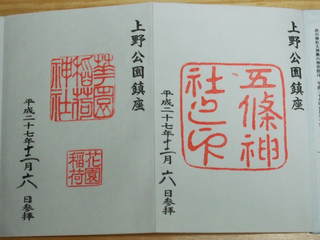 上野公園鎮座
五條神
社之印
平成二十七年十二月六日参拝
上野公園鎮座
華園
稲荷
神社
花園
稲荷
平成二十七年十二月六日参拝